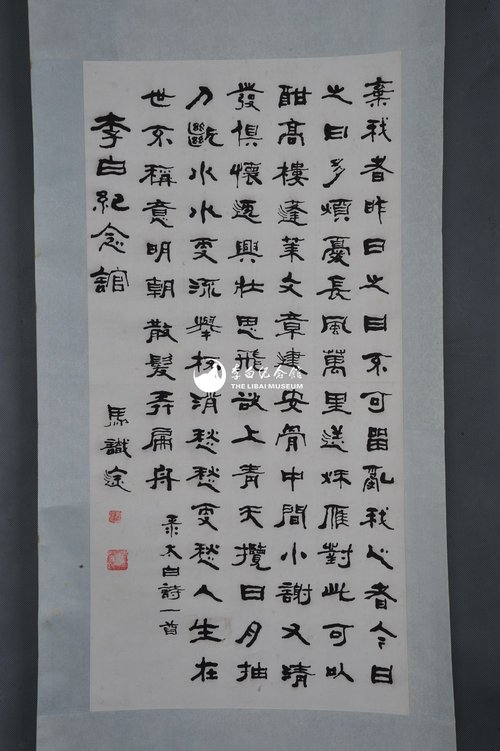 棄我者昨日之日不可留亂我心者今日
之日多煩憂長風萬里送秋雁對此可以
酣高樓蓬萊文章建安骨中間小謝又清
發俱懷逸興壯思飛欲上青天攬日月抽
刀斷水水更流舉杯消愁愁更愁人生在
世不稱意明朝散髮弄扁舟
录太白詩一首
李白紀念館
馬識途
李白纪念馆
THE LIBAI MUSEUM